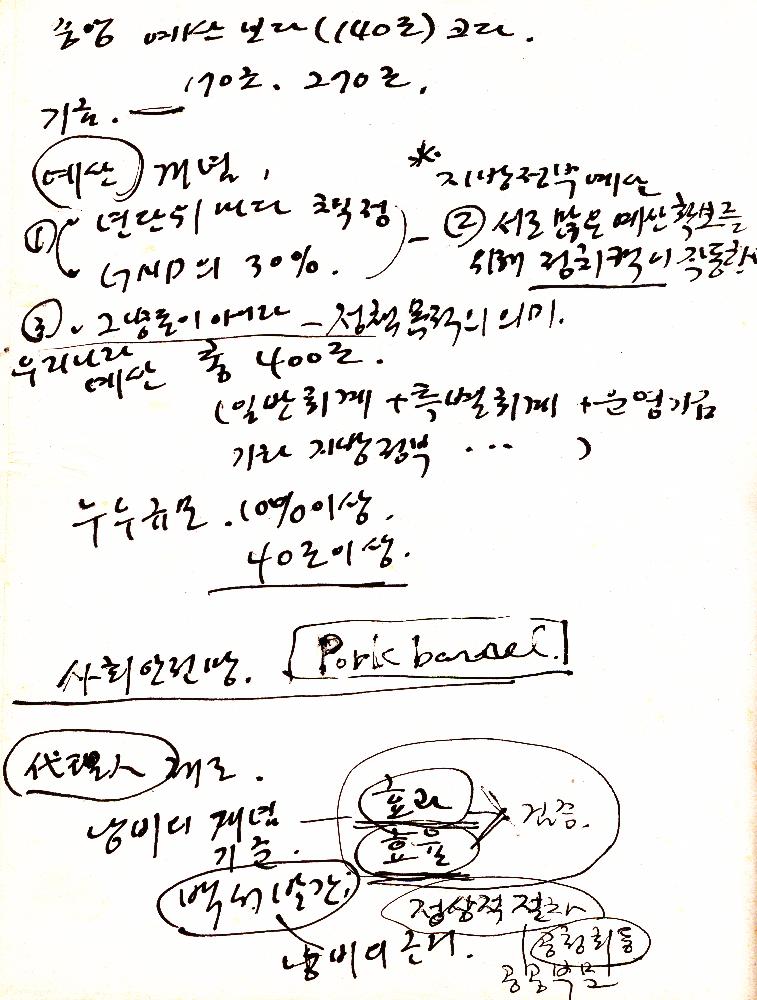 중앙 예산 보다 (140조) 크다.
170조. 270조.
기금. —
예산 개념,
* 지방정부예산
① 년단위마다 책정
GNP의 30%.
— ② 서로 많은 예산확보를
위해 정치력이 작동한
③ 그냥돈이 아니라 — 정책목적의 의미.
우리나라
예산 총 400조.
(일반회계 + 특별회계 + 운영기금
기타 지방정부 ... )
누수규모. 10%이상.
40조이상.
사회안전망. Pork barrel.
代理人 제도.
낭비의 개념 — 효과
기준. 효율
검증.
백서발간
정상적 절차
낭비의 근거.
공청회 등